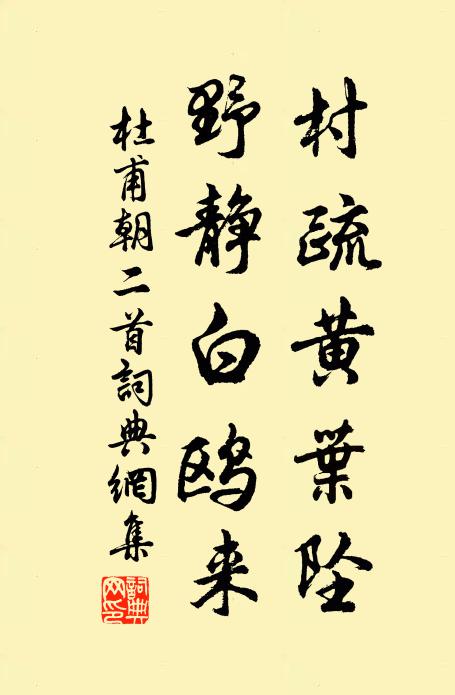 村疏黄葉坠
野静白鸥来
杜甫朝二首詞典網集
詞典网印